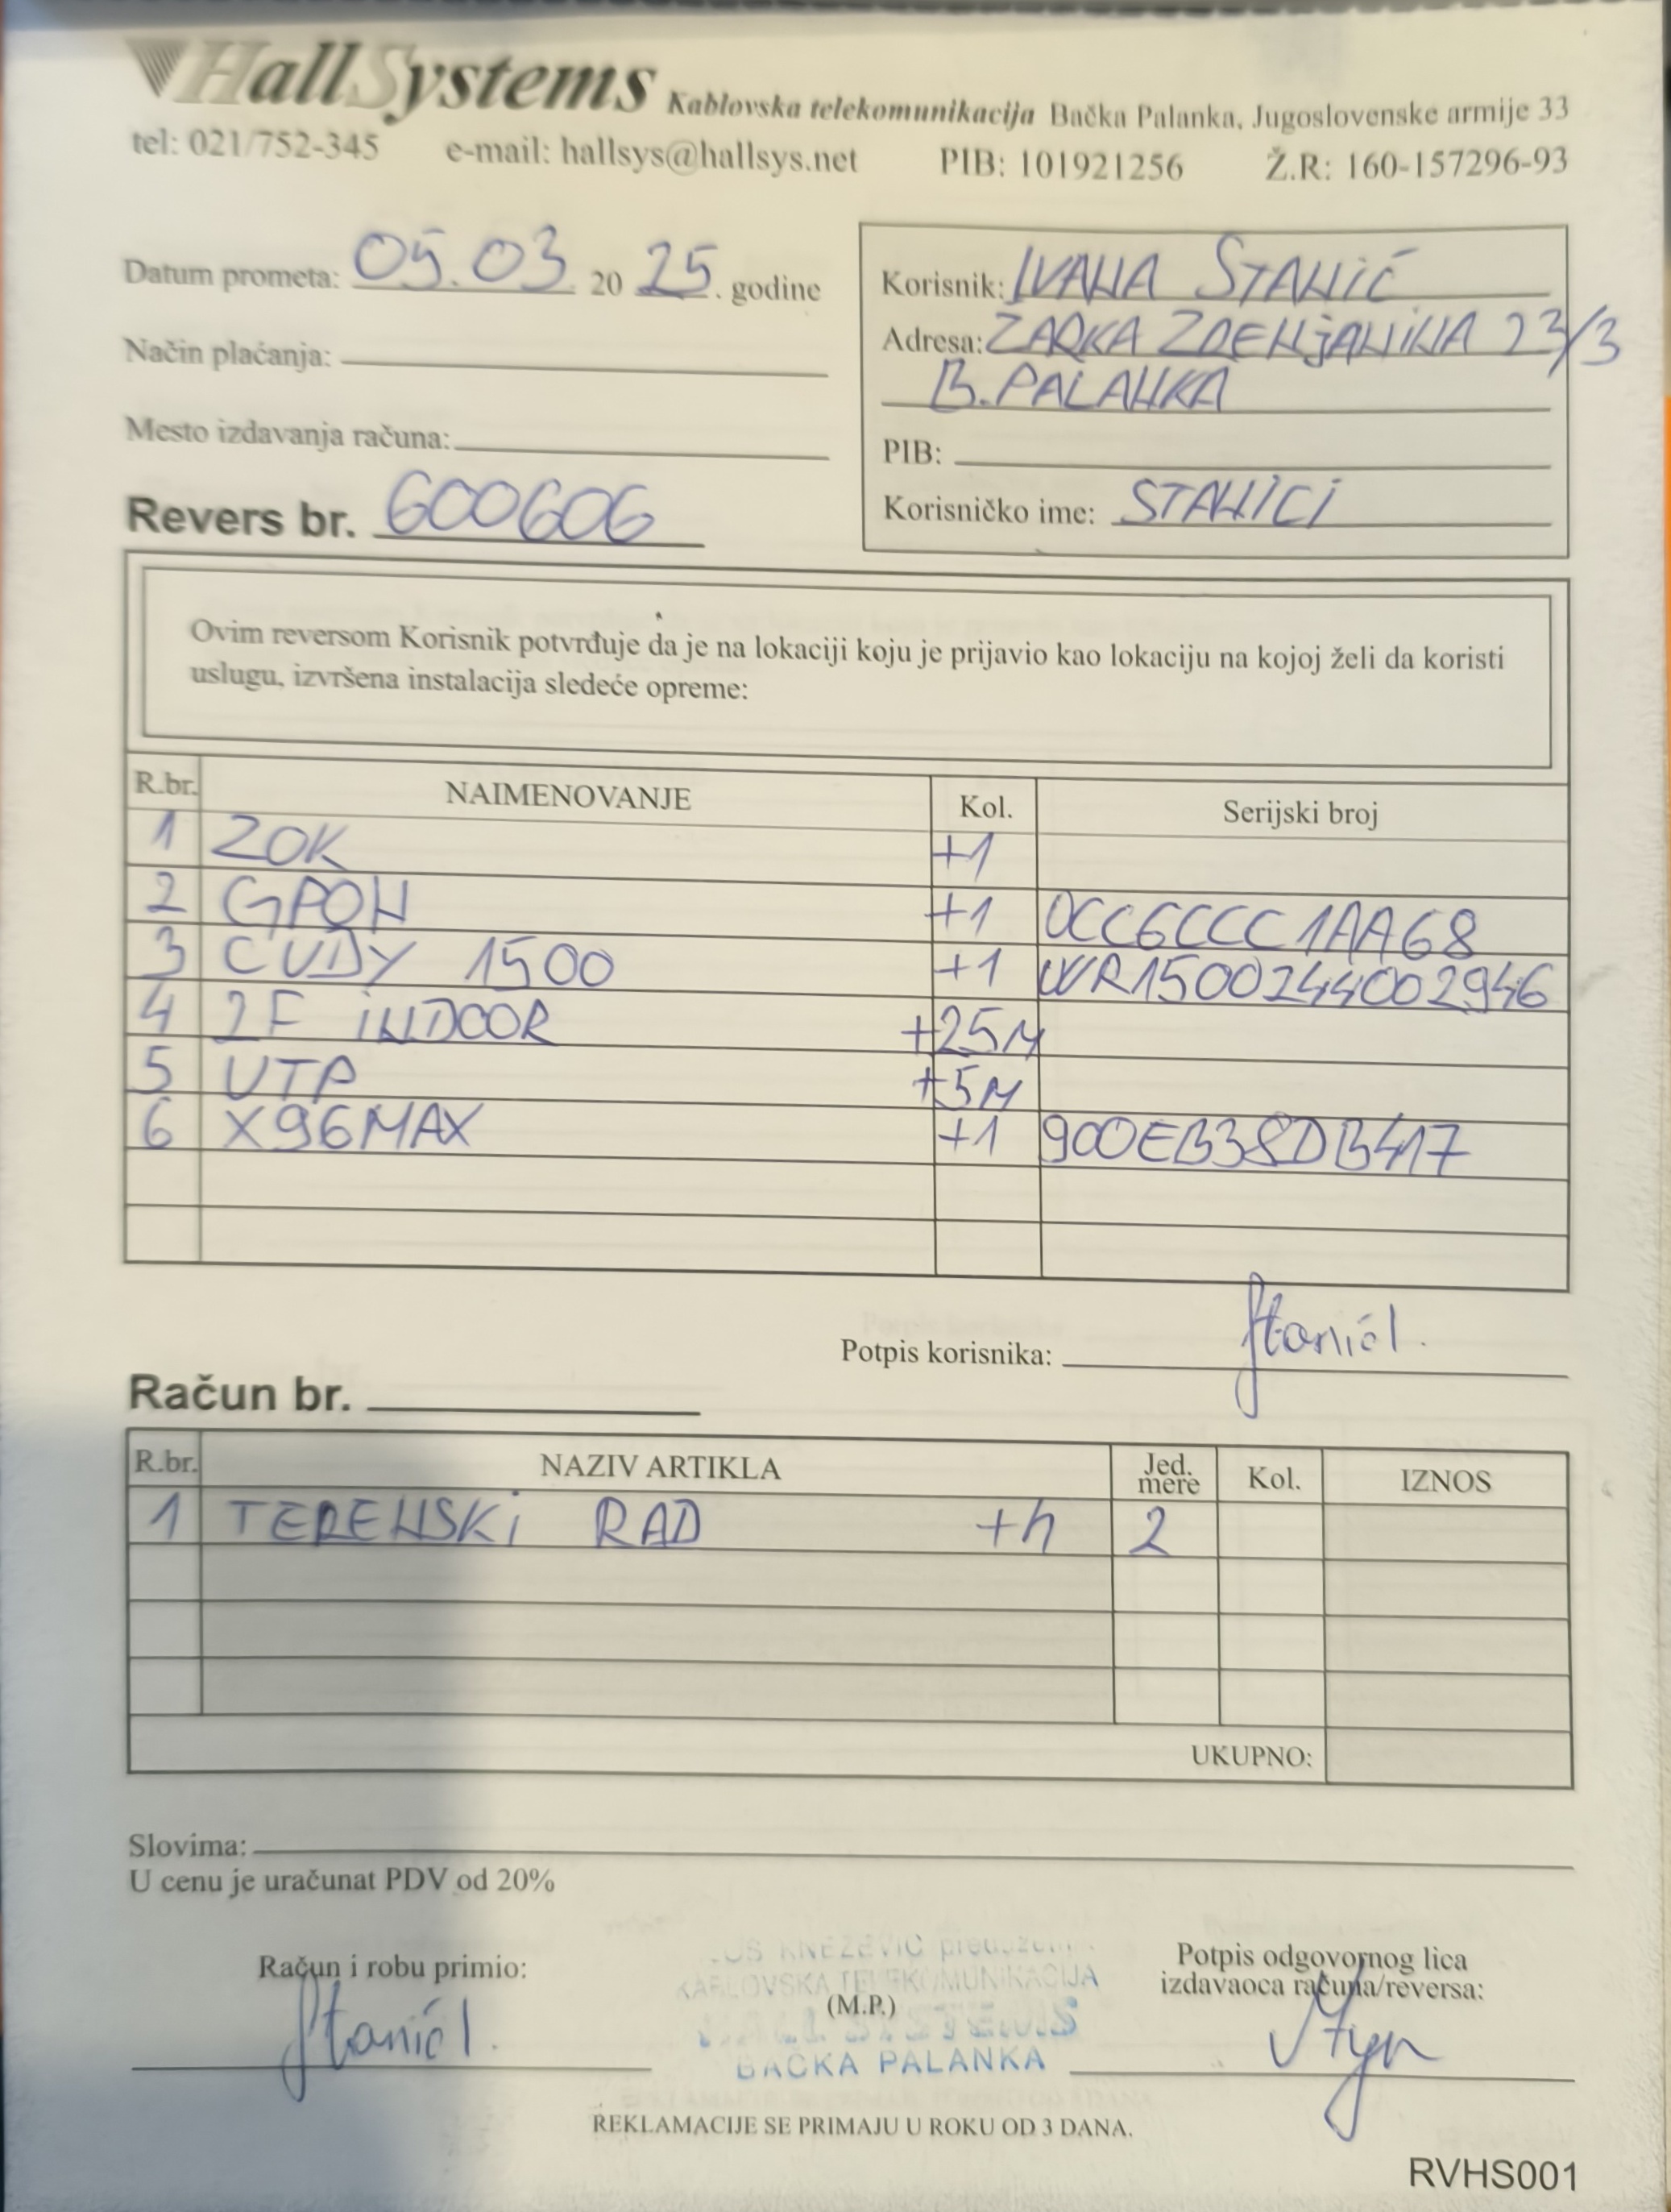 HallSystems Kablovska telekomunikacija Bačka Palanka, Jugoslovenske armije 33
tel: 021/752-345 e-mail: hallsys@hallsys.net PIB: 101921256 Ž.R: 160-157296-93
Datum prometa: 05.03. 20 25. godine
Način plaćanja:
Mesto izdavanja računa:
Revers br. 600606
Korisnik: IVANA STANIĆ
Adresa: ZARKA ZRENjANINA 23/3
B. PALANKA
PIB:
Korisničko ime: STANICI
Ovim reversom Korisnik potvrđuje da je na lokaciji koju je prijavio kao lokaciju na kojoj želi da koristi
uslugu, izvršena instalacija sledeće opreme:
R.br. NAIMENOVANJE Kol. Serijski broj
1 ZOK +1
2 GPON +1 0CC6CCC1AA68
3 CUDY 1500 +1 WR1500244002946
4 2F INDOOR +25M
5 UTP +5M
6 X96MAX +1 900EB38DB417
Potpis korisnika: Stanić I.
Račun br.
R.br. NAZIV ARTIKLA Jed. mere Kol. IZNOS
1 TERENSKI RAD +h 2
UKUPNO:
Slovima:
U cenu je uračunat PDV od 20%
Račun i robu primio:
Stanić I.
KNEZEVIĆ
KABLOVSKA TELEKOMUNIKACIJA
(M.P.)
HALL SYSTEMS
BAČKA PALANKA
Potpis odgovornog lica
izdavaoca računa/reversa:
REKLAMACIJE SE PRIMAJU U ROKU OD 3 DANA.
RVHS001